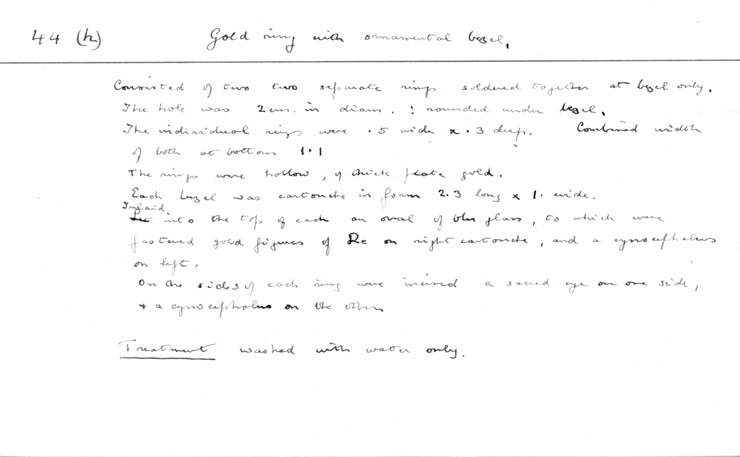 44 (h) Gold ring with ornamental bezel.
Consisted of two two separate rings soldered together at bezel only.
The hole was 2 cm. in diam. : rounded under bezel.
The individual rings were .5 wide x .3 deep. Combined width
of both at bottom 1.1
The rings were hollow, of thick plate gold.
Each bezel was cartouche in form 2.3 long x 1. wide.
Inlaid
into the top of each an oval of blue glass, to which were
fastened gold figures of Re on right cartouche, and a cynocephalus
on left.
On the sides of each ring were incised a sacred eye on one side,
+ a cynocephalus on the other.
Treatment washed with water only.